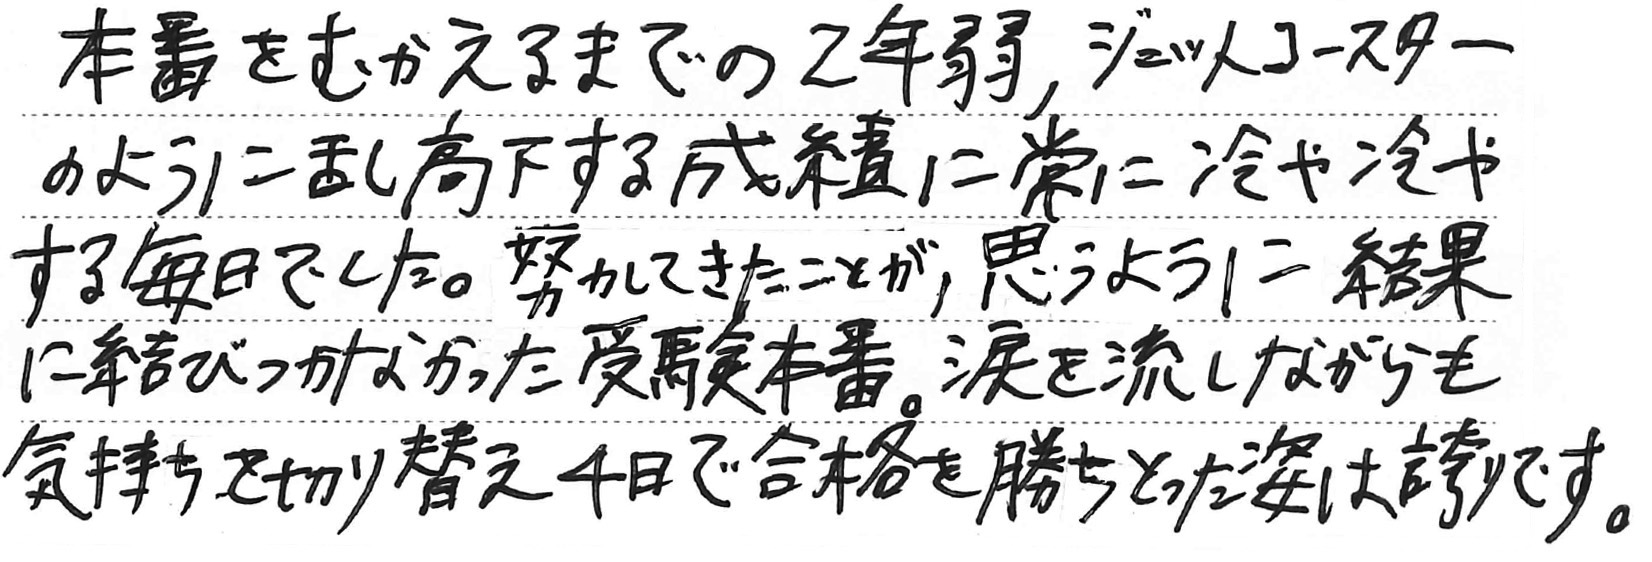 本番をむかえるまでの2年弱,ジェットコースター
のように乱高下する成績に常に冷や冷や
する毎日でした。努力してきたことが,思うように結果
に結びつかなかった受験本番。涙を流しながらも
気持ちを切り替え4日で合格を勝ちとった姿は誇りです。